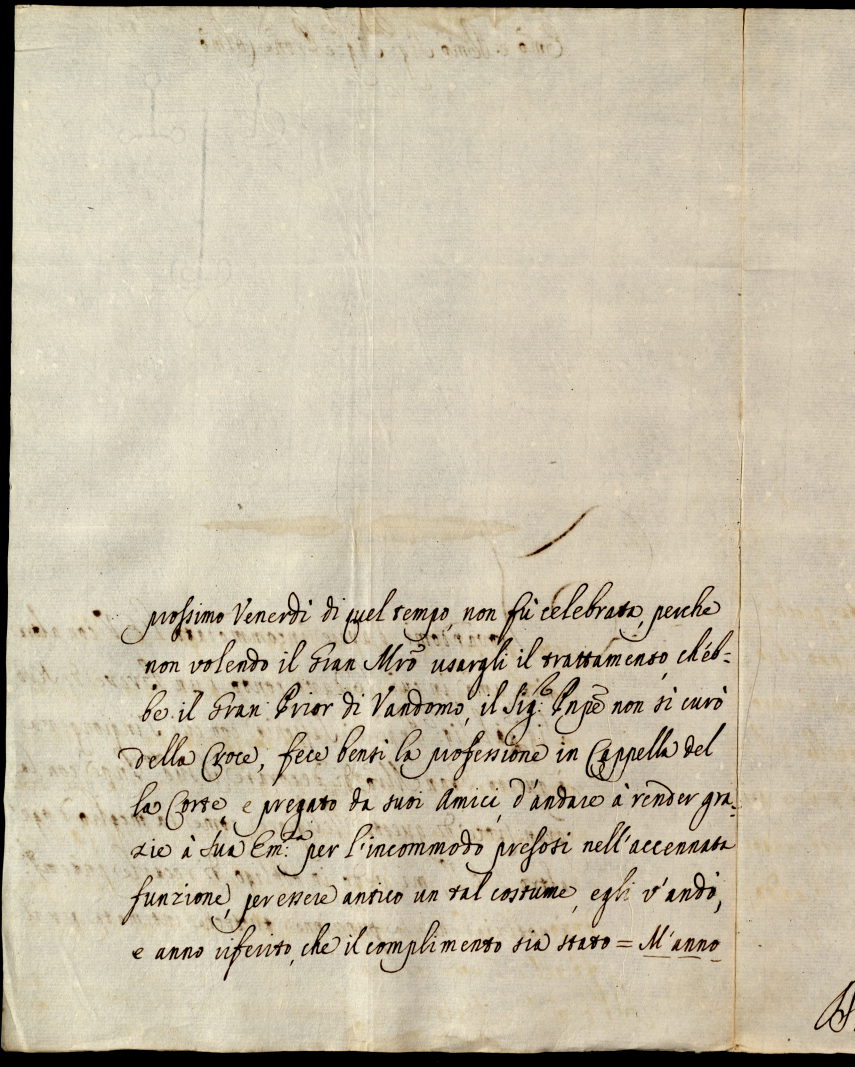 prossimo Venerdì di quel tempo, non fù celebrata, perche
non volendo il Gran Mrõ usargli il trattamento, ch'éb=
be il Gran Prior di Vandomo, il Sig:re Pnpẽ non si curò
della Croce, fece bensi la professione in Cappella del
la Corte, e pregato da suoi Amici, d'andare à render gra,
zie à Sua Em:a per l'incommodo presosi nell'accennata
funzione, per essere antico un tal costume, egli v'andò,
e anno riferito, che il complimento sia stato = M'anno